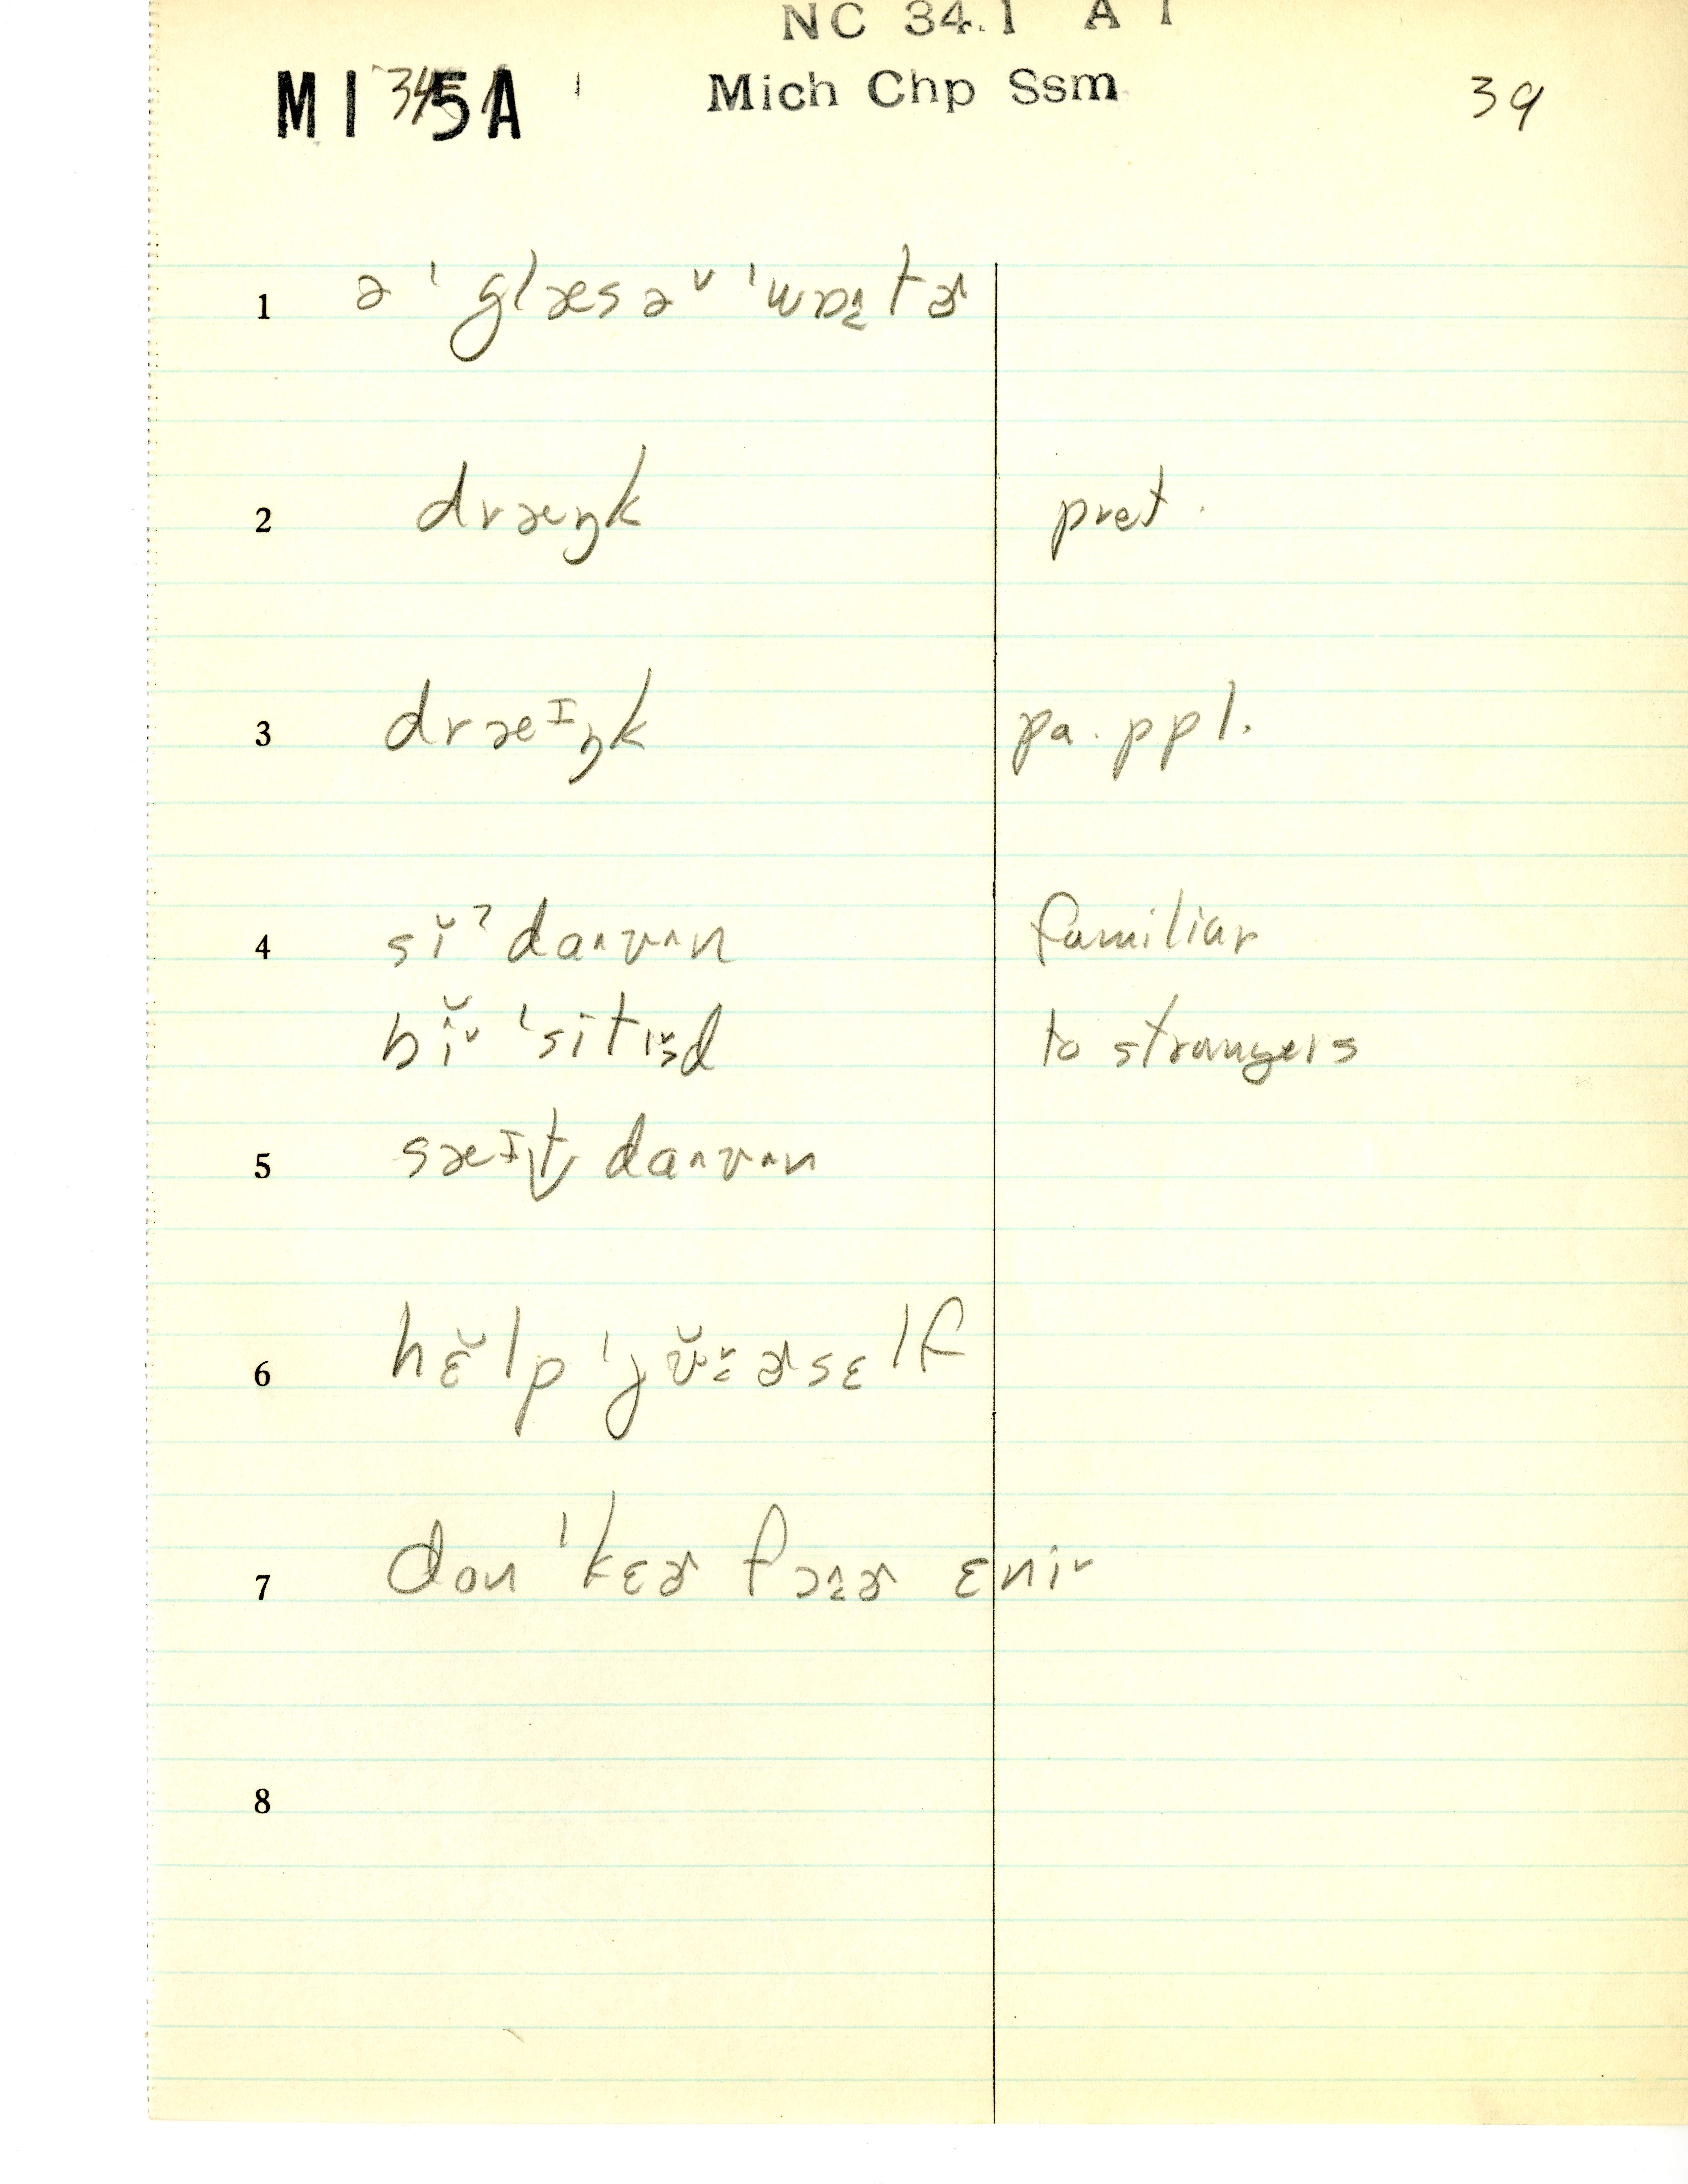 NC 34.1 A 1
MI 5A Mich Chp Ssm 39
1 ə ˈglæsəᵛ ˈwɒ̨tɚ
2 dræŋk pret.
3 dræᶦŋk pa. ppl.
4 sĭˀ da˄ʊ˄n familiar
bĭ˅ ˈsitɪd to strangers
5 sæᶦt̬ da˄ʊ˄n
6 hɛ̆lp ˈjʊ̆˅ɚsɛlf
7 don ˈkɛɚ fɔɚ ɛni˅
8